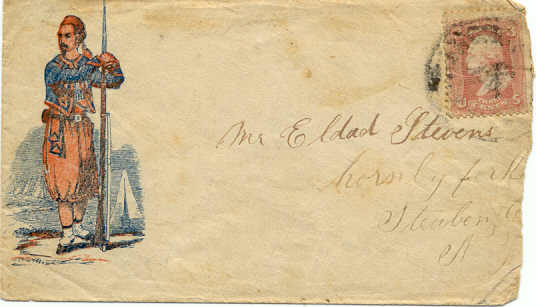 Mr Eldad Stevens
hornby forks
Steuben, C
N